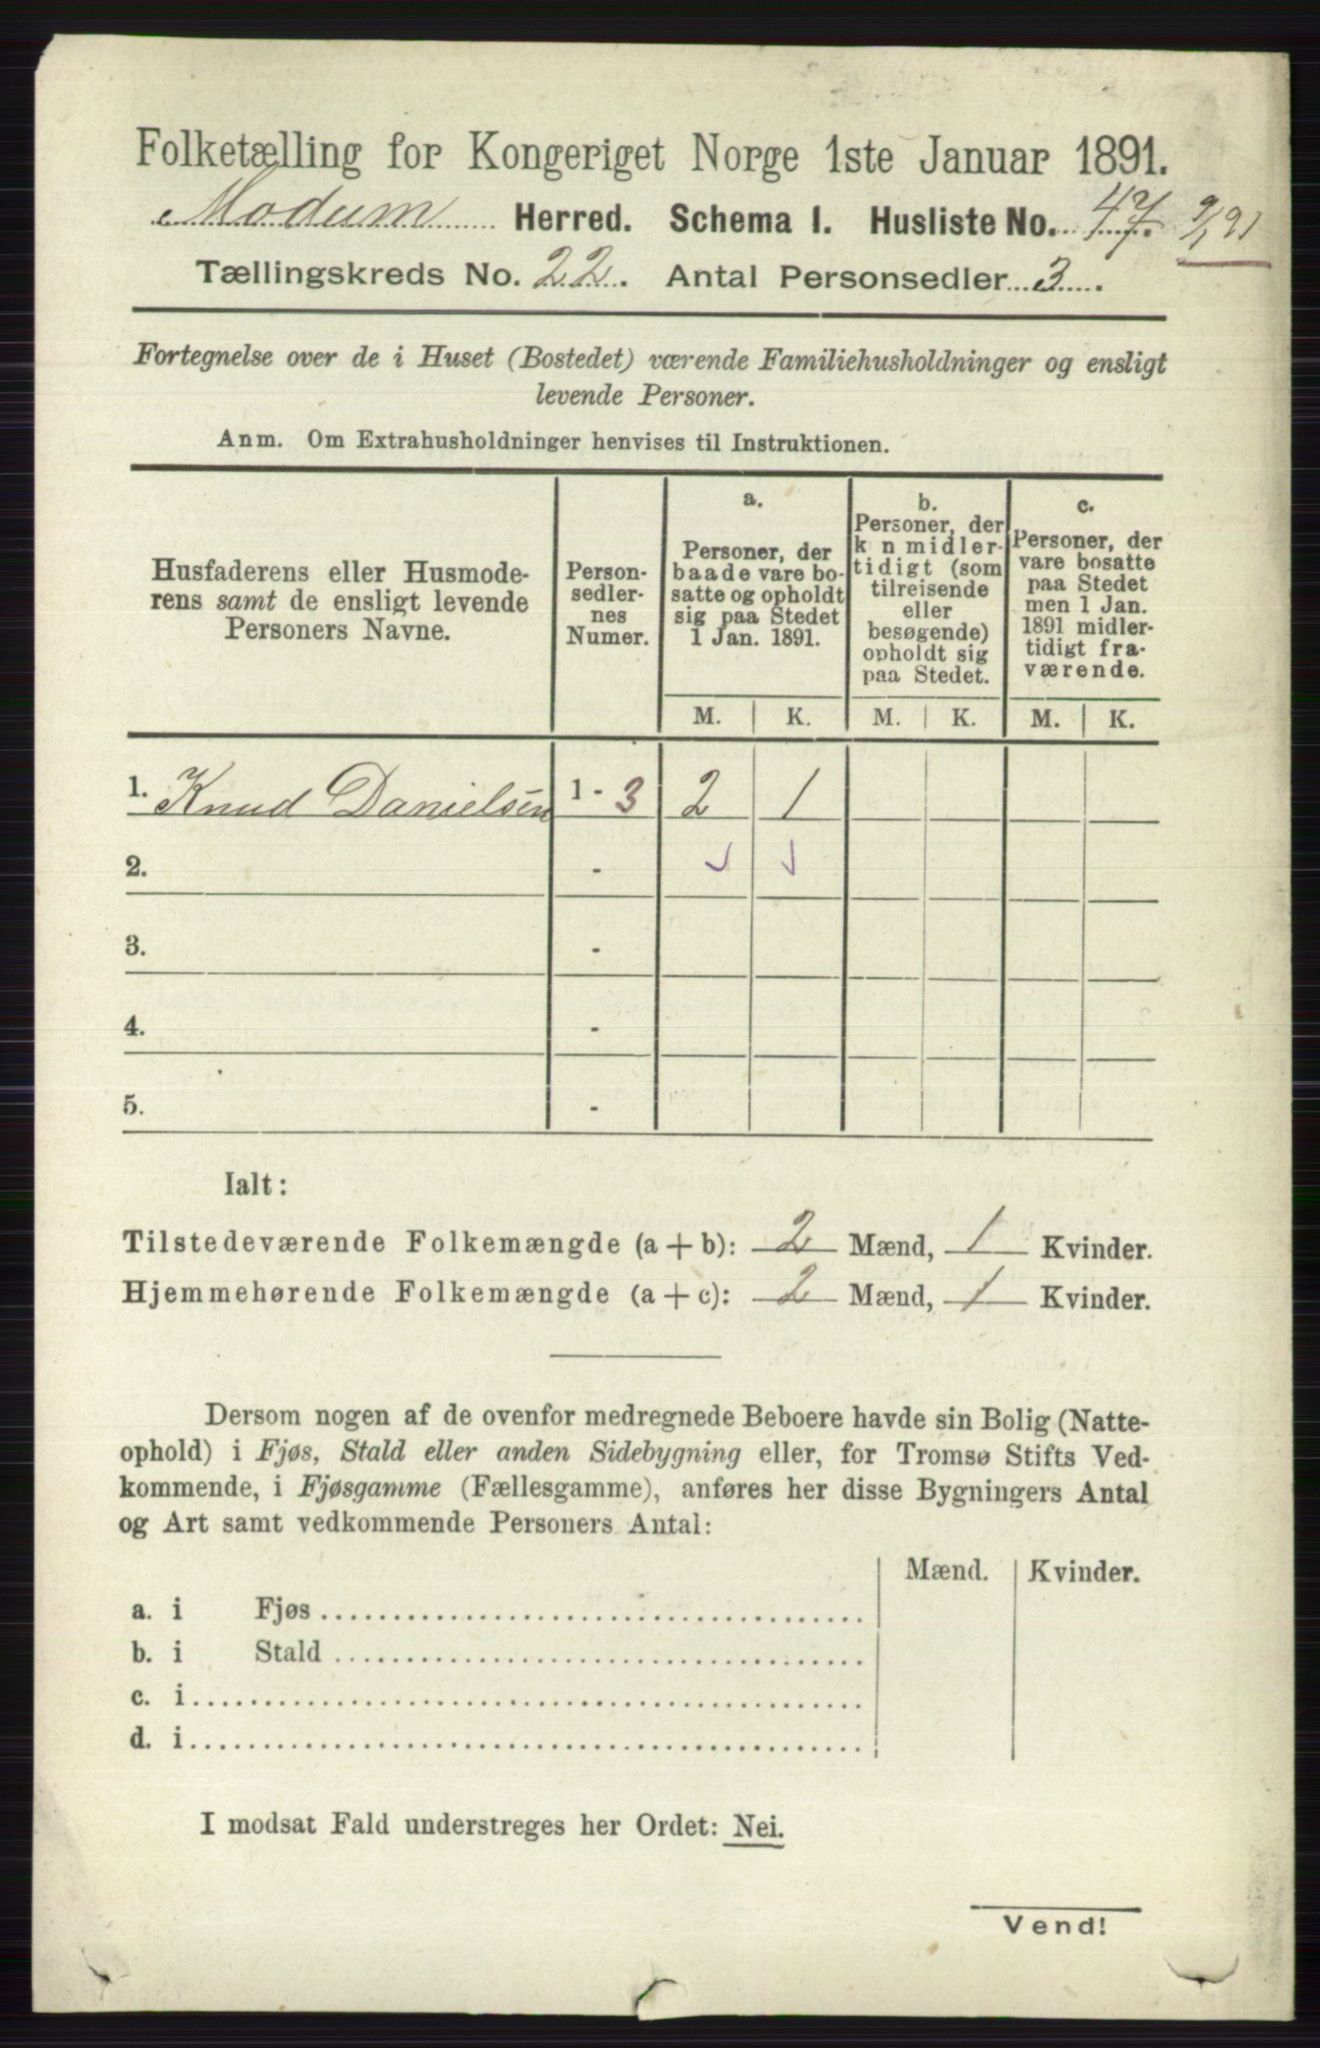 Folketælling for Kongeriget Norge 1ste Januar 1891.
Modum Herred. Schema I. Husliste No. 47. 9/1 91
Tællingskreds No. 22. Antal Personsedler 3.
Fortegnelse over de i Huset (Bostedet) værende Familiehusholdninger og ensligt
levende Personer.
Anm. Om Extrahusholdninger henvises til Instruktionen.
Husfaderens eller Husmode-
rens samt de ensligt levende
Personers Navne.
Person-
sedler-
nes
Numer.
a.
Personer, der
baade vare bo-
satte og opholdt
sig paa Stedet
1 Jan. 1891.
b.
Personer, der
k n midler-
tidigt (som
tilreisende
eller
besøgende)
opholdt sig
paa Stedet.
c.
Personer, der
vare bosatte
paa Stedet
men 1 Jan.
1891 midler-
tidigt fra-
værende.
M. K. M. K. M. K.
1. Knud Danielsen 1 - 3 2 1
2. -
3. -
4. -
5. -
Ialt:
Tilstedeværende Folkemængde (a + b): 2 Mænd, 1 Kvinder.
Hjemmehørende Folkemængde (a + c): 2 Mænd, 1 Kvinder.
Dersom nogen af de ovenfor medregnede Beboere havde sin Bolig (Natte-
ophold) i Fjøs, Stald eller anden Sidebygning eller, for Tromsø Stifts Ved-
kommende, i Fjøsgamme (Fællesgamme), anføres her disse Bygningers Antal
og Art samt vedkommende Personers Antal:
Mænd. Kvinder.
a. i Fjøs
b. i Stald
c. i
d. i
I modsat Fald understreges her Ordet: Nei.
Vend!